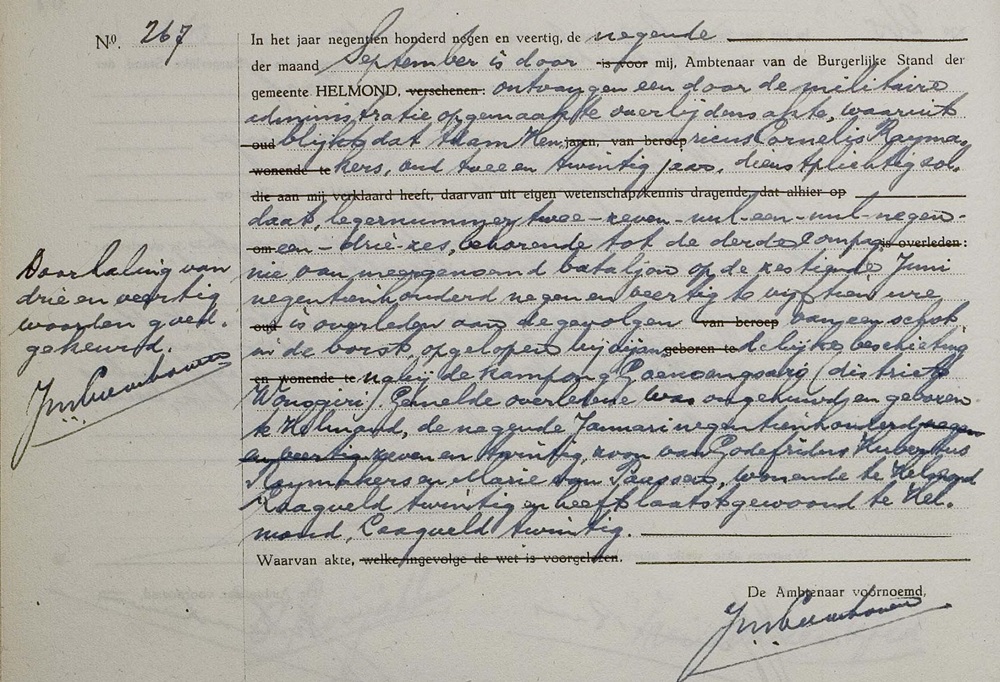 No. 267
In het jaar negentien honderd negen en veertig, de negende
der maand September is door is voor mij, Ambtenaar van de Burgerlijke Stand der
gemeente HELMOND, verschenen: ontvangen een door de militaire
administratie opgemaakte overlijdensakte, waaruit
oud blijkt dat Hen jaren, van beroep ricus Cornelis Rayma-
wonende te kers, oud twee en twintig jaar, dienstplichtig sol-
die aan mij verklaard heeft, daarvan uit eigen wetenschap kennis dragende, dat alhier op
daat, legernummer twee-zeven-nul-een-nul-negen-
om een-drie-zes, behorende tot de derde Compag is overleden:
nie van meergenoemd bataljon op de zestiende Juni
negentienhonderd negen en veertig te vijftien ure
oud is overleden aan de gevolgen van beroep van een schot
in de borst, opgelopen bij vijan geboren te delijke beschieting
en wonende te nabij de kampong Goenoengsarg (district
Wonogiri) Gemelde overledene was ongehuwd en geboren
te Helmond, de negende Januari negentienhonderd negen
en veertig zeven en twintig, zoon van Godefridus Hubertus
Raymakers en Maria van , wonende te Helmond
Laagveld twintig en heeft laatst gewoond te Hel-
mond, Laagveld twintig.
Waarvan akte, welke ingevolge de wet is voorgelezen.
De Ambtenaar voornoemd,
Doorhaling van
drie en veertig
woorden goed-
gekeurd.